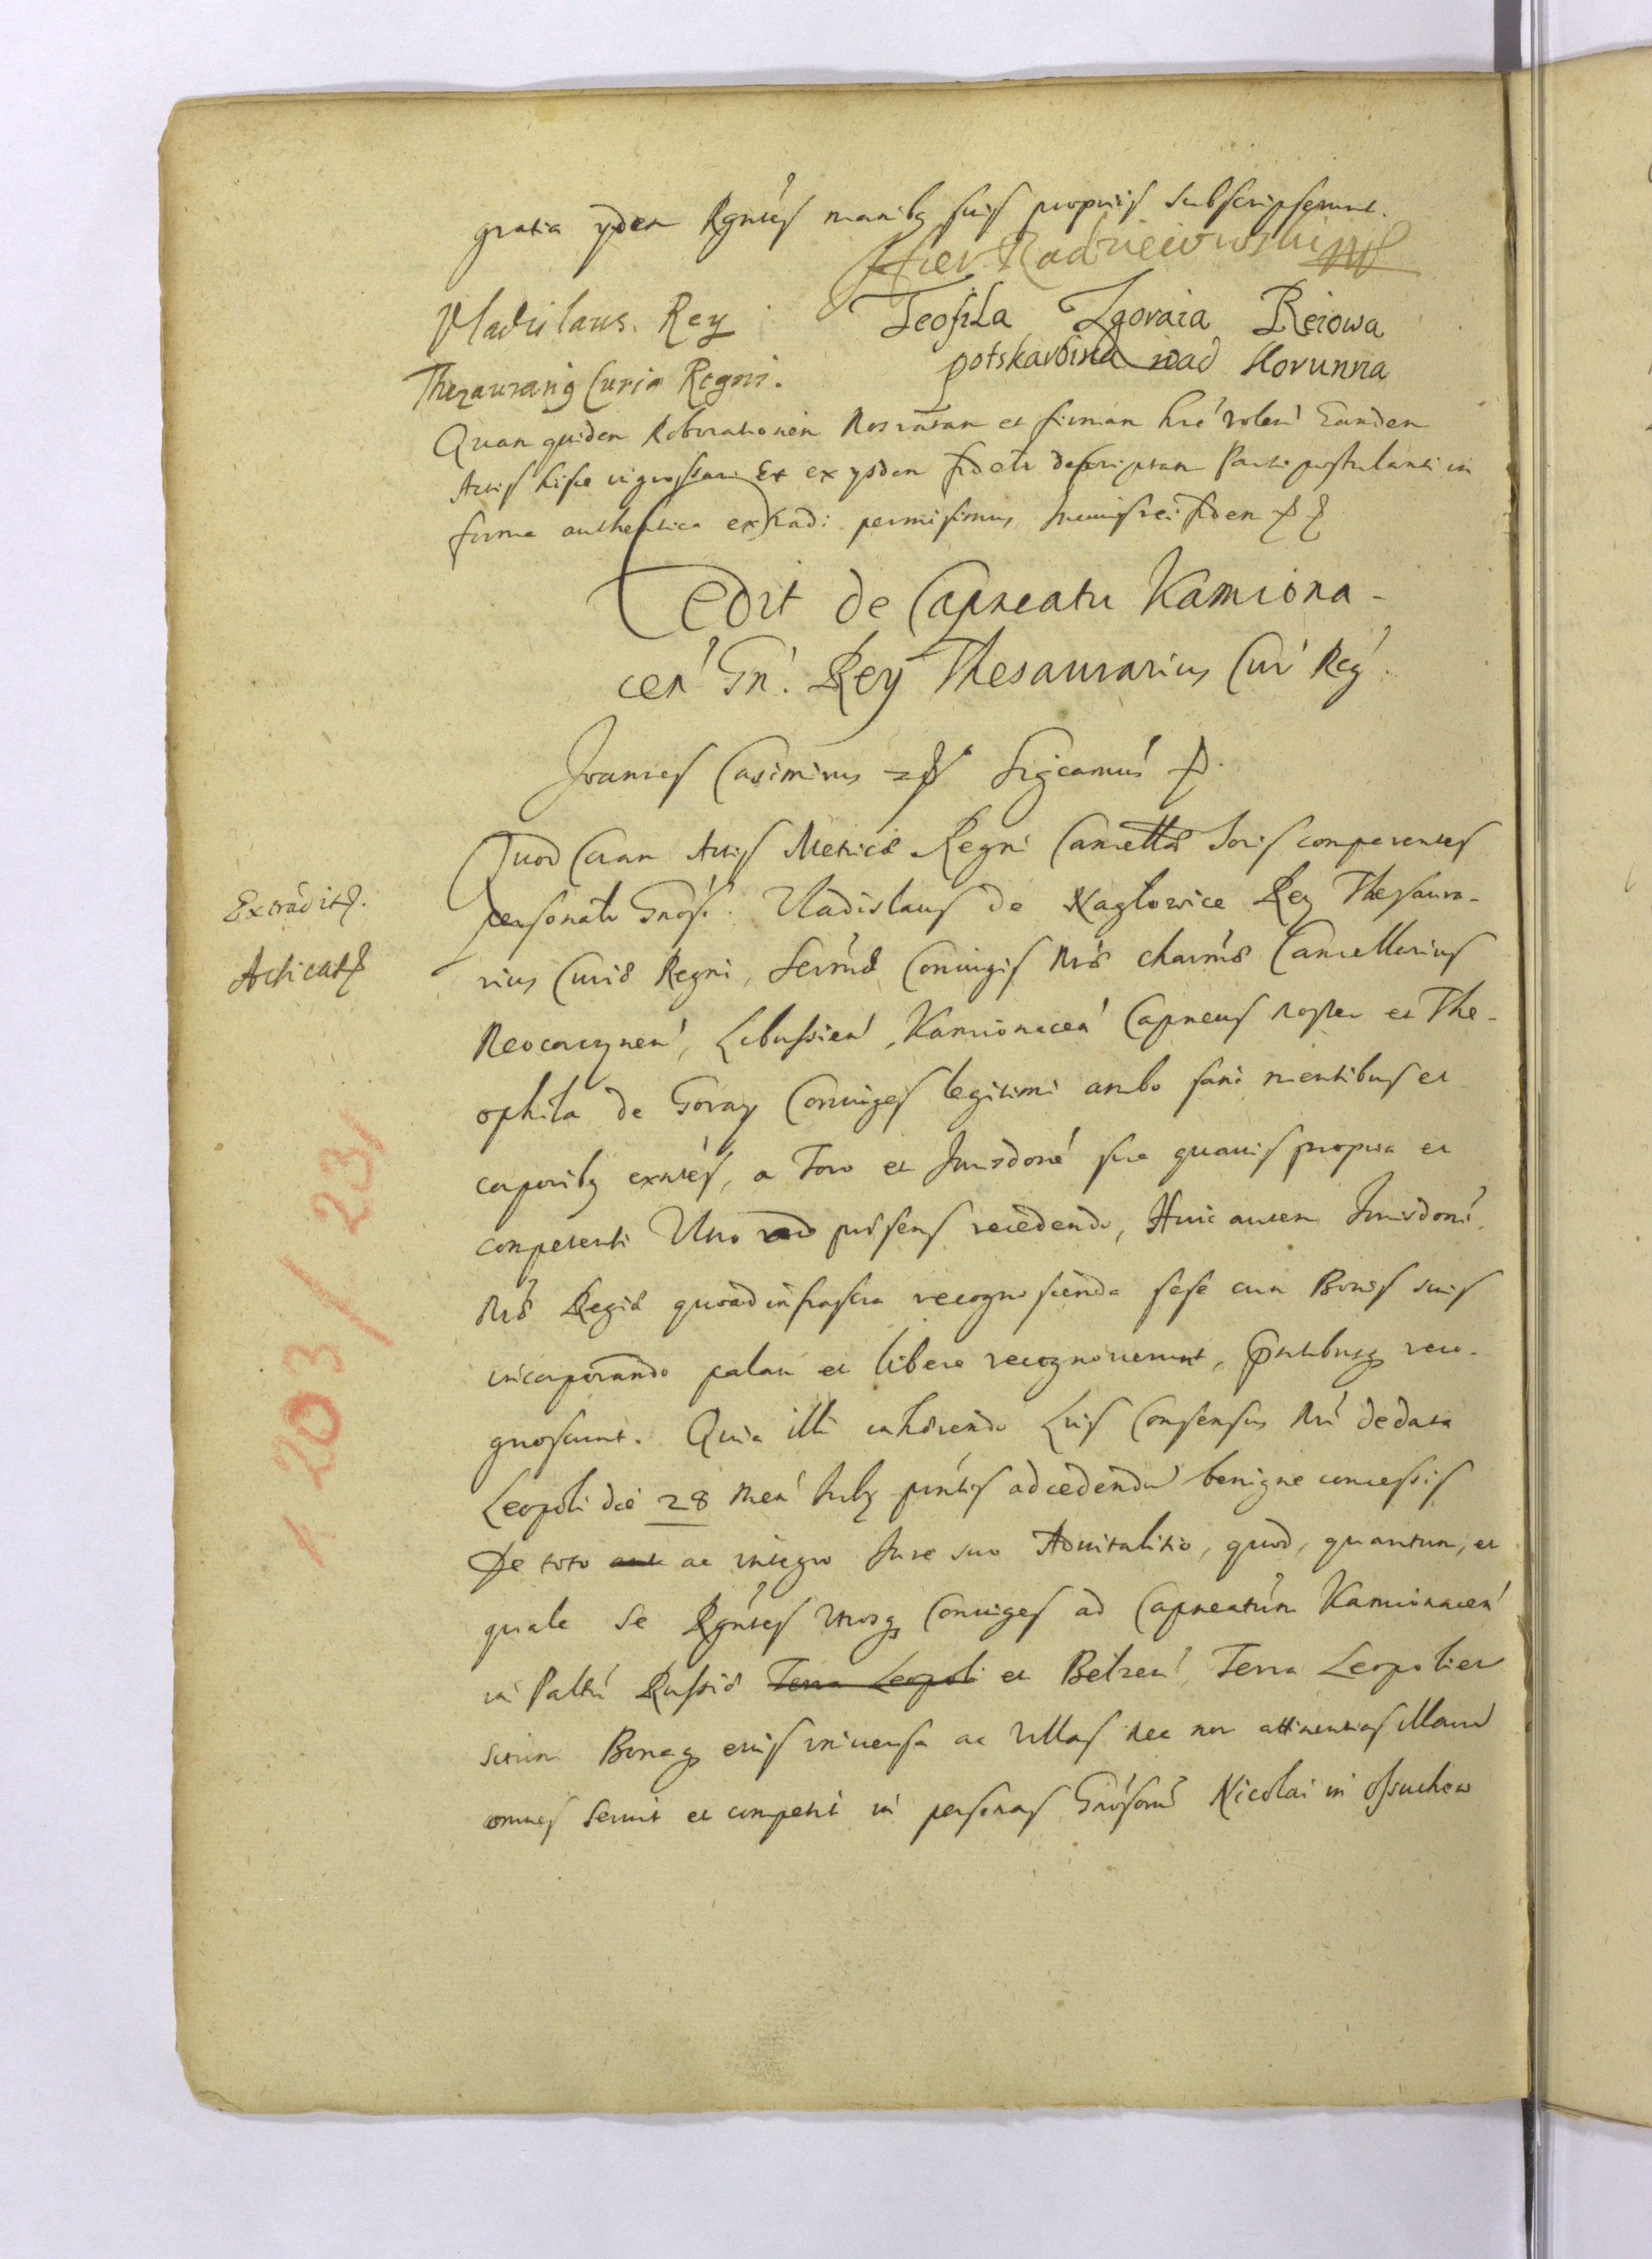 gratia ijdem Rgntes manibq suis proprijs subscripserunt.
Hier Radzieiowski mp
Vladislaus. Rey
Teofila Zgoraia Reiowa
Thezaurariq Curiæ Regni.
potskarbina nad Korunna
Quam quidem Roborationem Nos ratam et firmam hre volen Eandem
Actis hisce ingrossari Et ex ysdem fideli descriptam Parti postulanti in
forma authentica extradi permisimus, In cuius rei fidem
Cedit de Capneatu Kamiona-
cen Gn. Rey Thesaurarius Cur Reg.
Joannes Casimirus Sigcamus
Quod Coram Actis Metricæ Regni Cancellæ Noris comparentes
Extradit.
personalr Gnosi. Vladislaus de Nagłowice Rey Thesaura-
Acticat
rius Curiæ Regni, Sermæ Coniugis Nræ charmæ Cancellarius
Neocorcynen, Libussien, Kamionacen Capneus noster et The-
ophila de Goray Coniuges legitimi ambo sani mentibus et
corporibq exntes, a Foro et Jurisdone sua quauis propria et
competenti Uno ad præsens recedendo, Huic autem Jurisdoni
Næ Regiæ quoad infrascra recognoscenda sese cum Bonis suis
incorporando palam et libere recognouerunt, pntibusq reco-
gnoscunt. Quia illi inhærendo Lris Consensus Nri de data
Leopoli die 28 Men July pntis ad cedendu benigne concessis
De toto aut ac integro Jure suo Aduitalitio, quod, quantum, et
quale se Rgntes Utrosq Coniuges ad Capneatum Kamionacen
in Paltu Russiæ Terra Leopoli et Belzen Terra Leopolien
situm Bonaq eius vniuersa ac Villas nec non attinentias illarum
omnes seruit et competit in personas Gnosorum Nicolai in Ossuchow
1 203/231